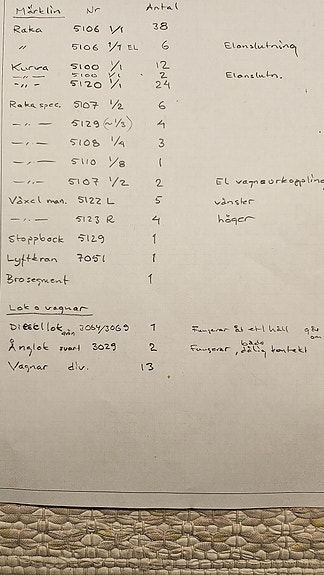 Märklin Nr Antal
Raka 5106 1/1 38
" 5106 1/1 EL 6 Elanslutning
Kurva 5100 1/1 12
-"- 5100 1/1 2 Elanslutn.
-"- 5120 1/1 24
Raka spec. 5107 1/2 6
-"- 5129 (~1/3) 4
-"- 5108 1/4 3
-"- 5110 1/8 1
-"- 5107 1/2 2 El vagnurkoppling
Växel man. 5122 L 5 vänster
-"- 5123 R 4 höger
Stoppbock 5129 1
Lyftkran 7051 1
Brosegment 1
Lok o vagnar
Diesellok grön 3064/3069 1 Fungerar åt ett håll går om
Ånglok svart 3029 2 Fungerar båda, dålig kontakt
Vagnar div. 13